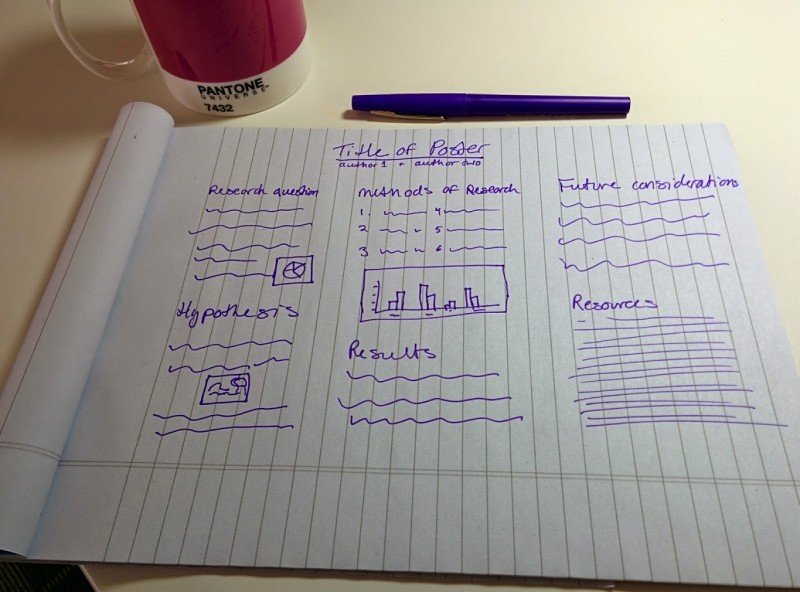 PANTONE
UNIVERSE™
7432
Title of Poster
author 1 + author two
Research question
Hypothesis
methods of Research
1. 4
2 5
3 6
Results
Future considerations
Resources